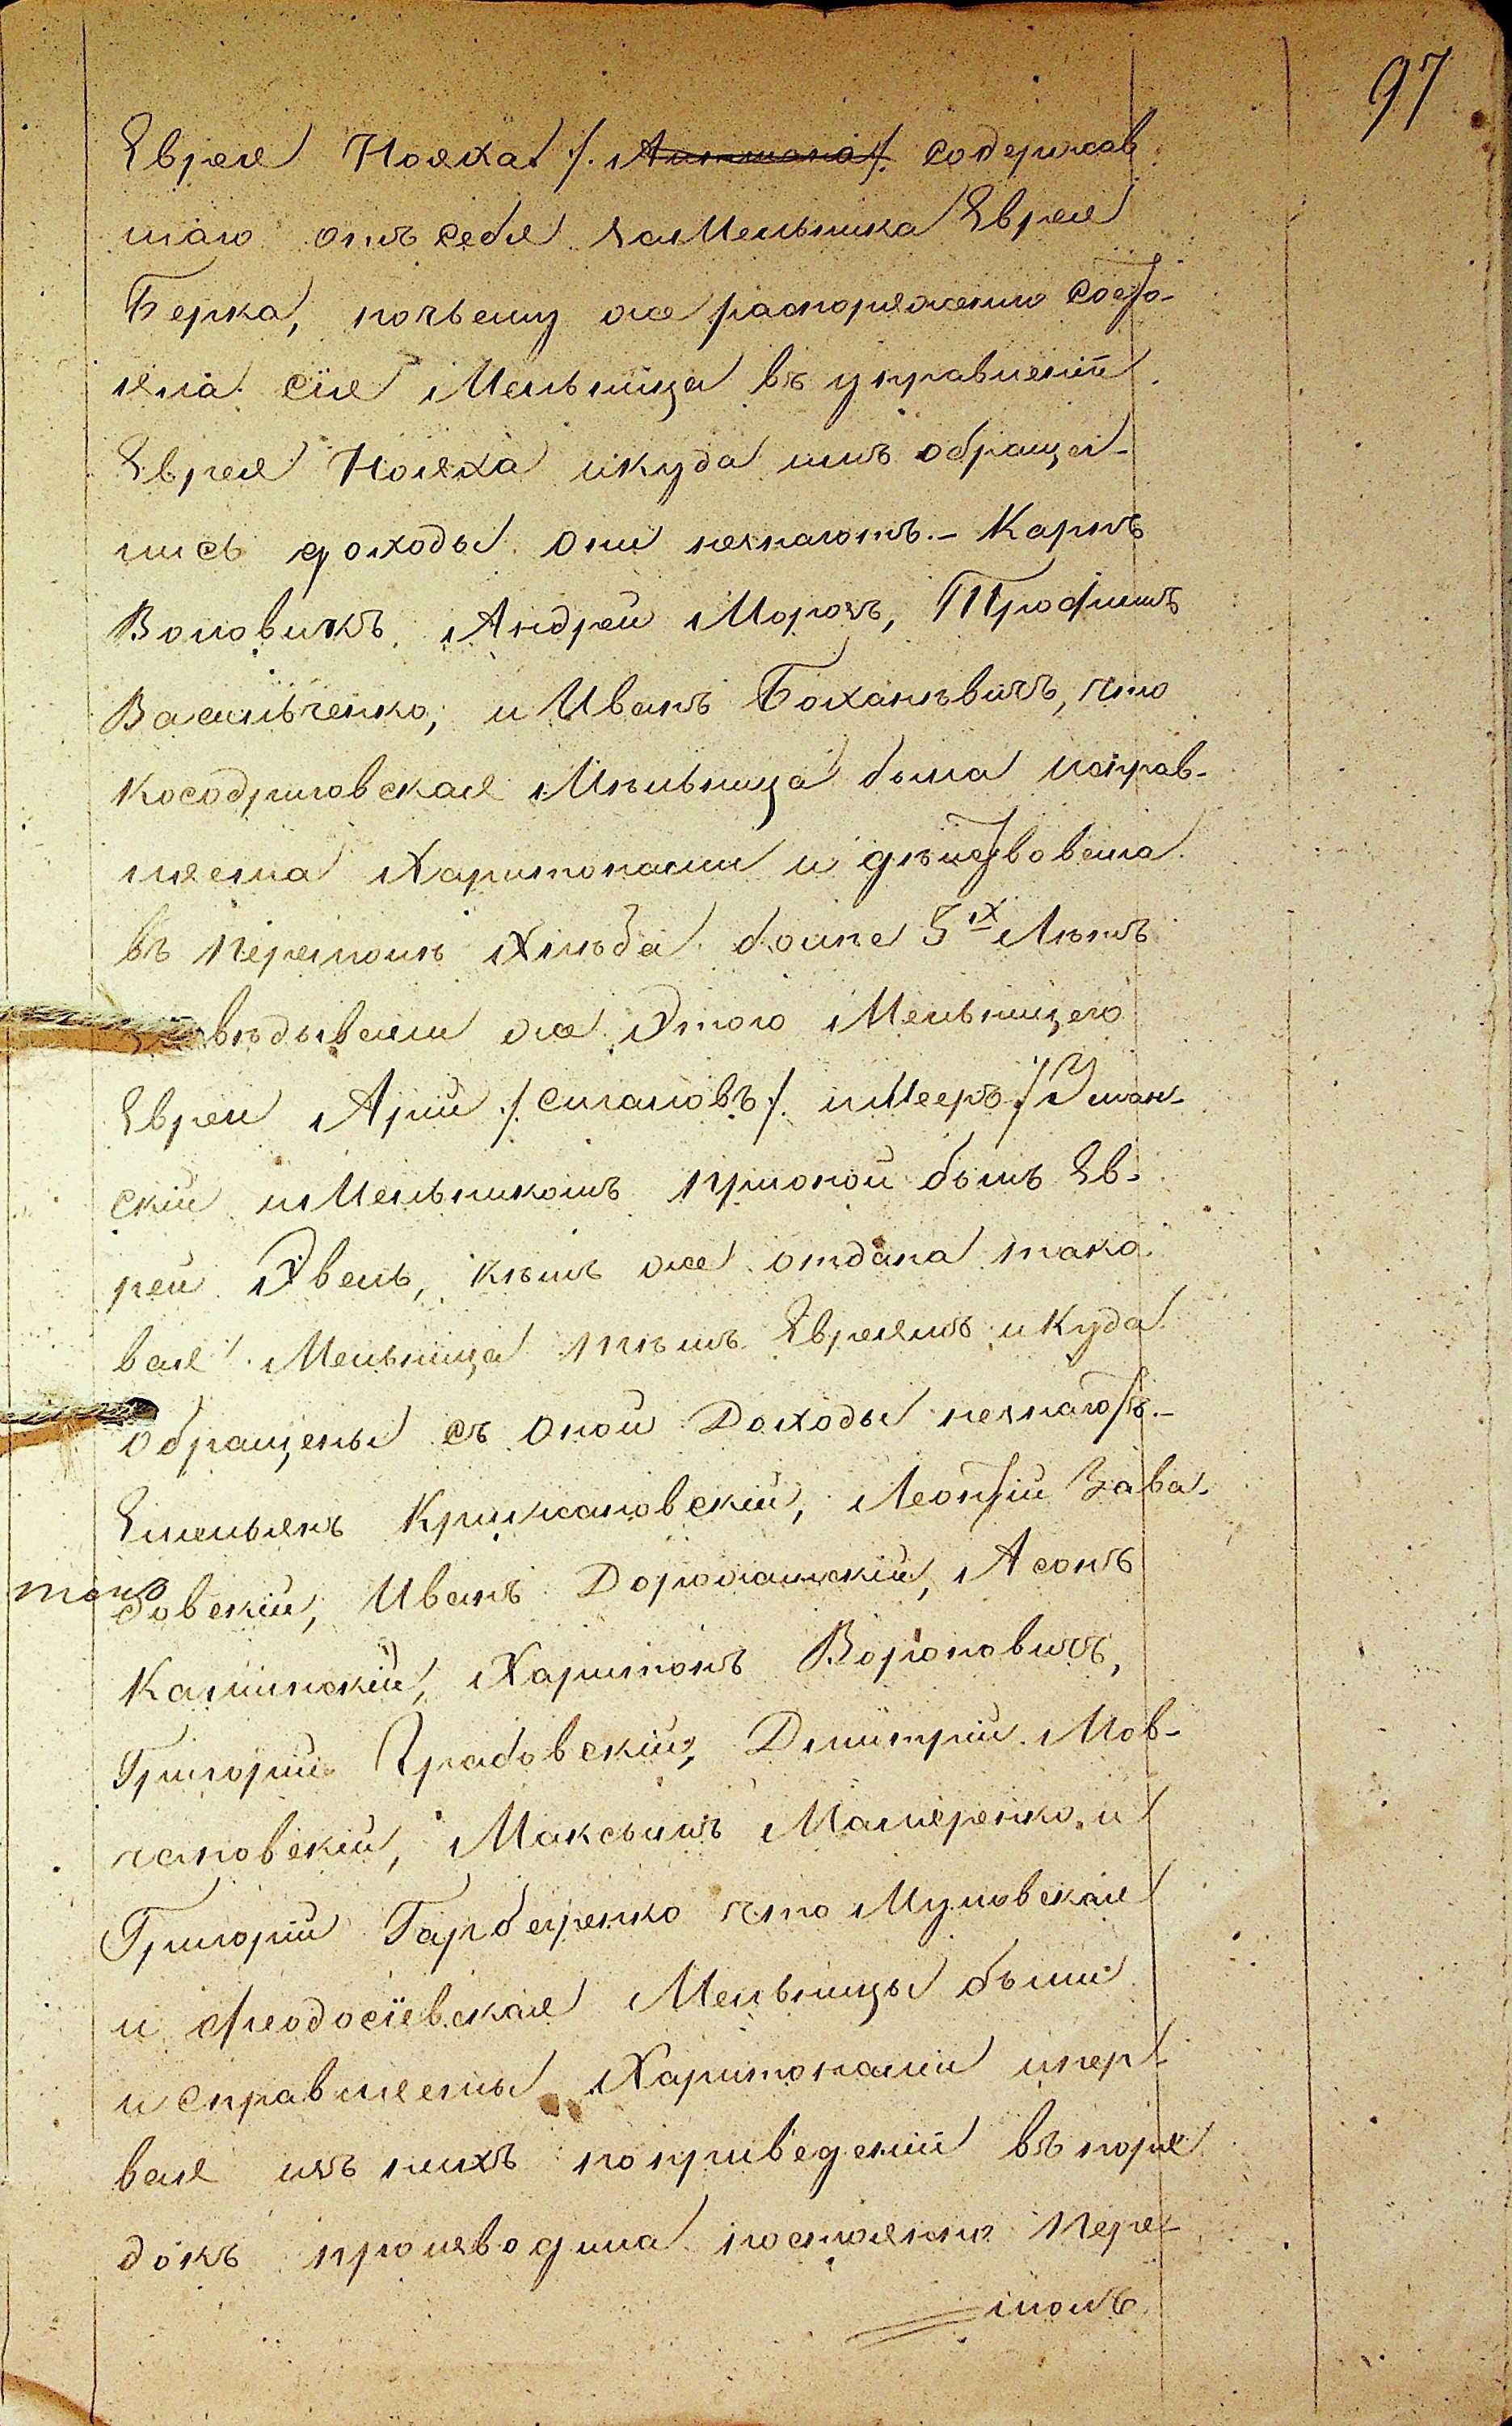 97
Еврея Нояха ./. содержав
шаго отъ себя замельника Еврея
Берка, почьему же распоряженію состо-
яла сія Мельница въ управленіи
Еврея Нояха икуда шлъ обращал-
лись доходы они незнаютъ.- Карпъ
Воловикъ Андрей Морозъ, Трофимъ
Васильченко, и Иванъ Боханѣвичъ, что
Косодриговская Мѣльница была исправ-
ляема Харитонами и дѣйствовала
въ перемолѣ Хлѣба болѣе 5ˣ Лѣтъ
вѣдывали же Этою Мельницею
Евреи Арій ./. Сигаловъ ./. иМееръ ./. Уман-
скій иМельникомъ при оной былъ Ев-
рей Эвель, кѣмъ же отдана тако-
вая Мельница тѣмъ Евреямъ икуда
обращены съ оной Доходы незнаютъ.-
Емельянъ Крижановскій, Леонтій Зава-
довскій, Иванъ Дорожанскій, Асонъ
Калинскій, Харитонъ Вороновичъ,
Григорій Грабовскій, Дмитрій Мов-
чановскій, Максымъ Маляренко, и
Григорій Гарбаренко что Муловская
и Феодосіевская Мельницы были
исправляемы Харитонами ипер-
вая изъ нихъ поприведеніи въ поря
докъ производила постоянно Пере-
молъ